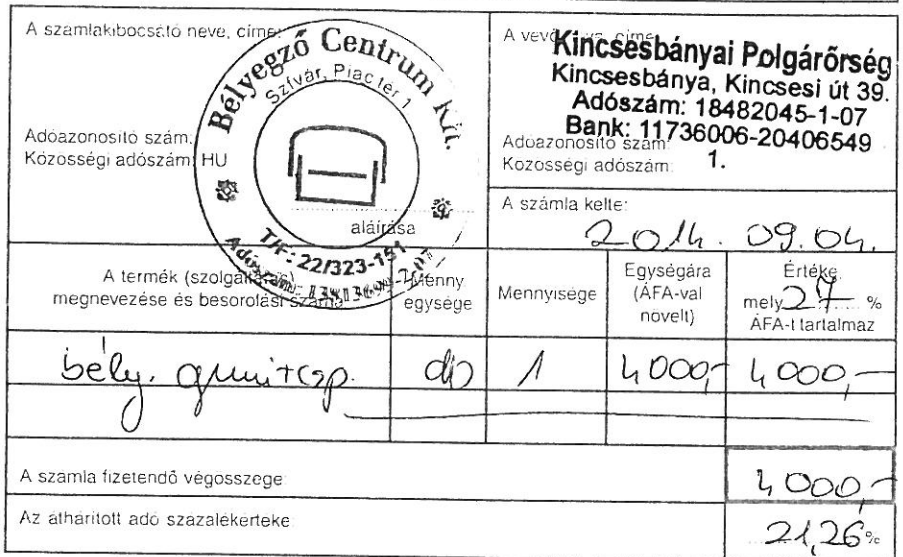 A számlakibocsátó neve, címe:
Bélyegző Centrum Kft.
Szfvár, Piac tér 1
Adóazonosító szám:
Közösségi adószám: HU
aláírása
T/F: 22/323-151
A vevő címe
Kincsesbányai Polgárőrség
Kincsesbánya, Kincsesi út 39.
Adószám: 18482045-1-07
Bank: 11736006-20406549
Adóazonosító szám:
Közösségi adószám:
1.
A számla kelte:
2014. 09. 04.
A termék (szolgáltatás)
megnevezése és besorolási száma
Menny.
egysége
Mennyisége
Egységára
(ÁFA-val
növelt)
Értéke,
mely 27 %
ÁFA-t tartalmaz
bély. gumi+csp. db 1 4000,- 4000,-
A számla fizetendő végösszege:
4000,-
Az áthárított adó százalékértéke
21,26%